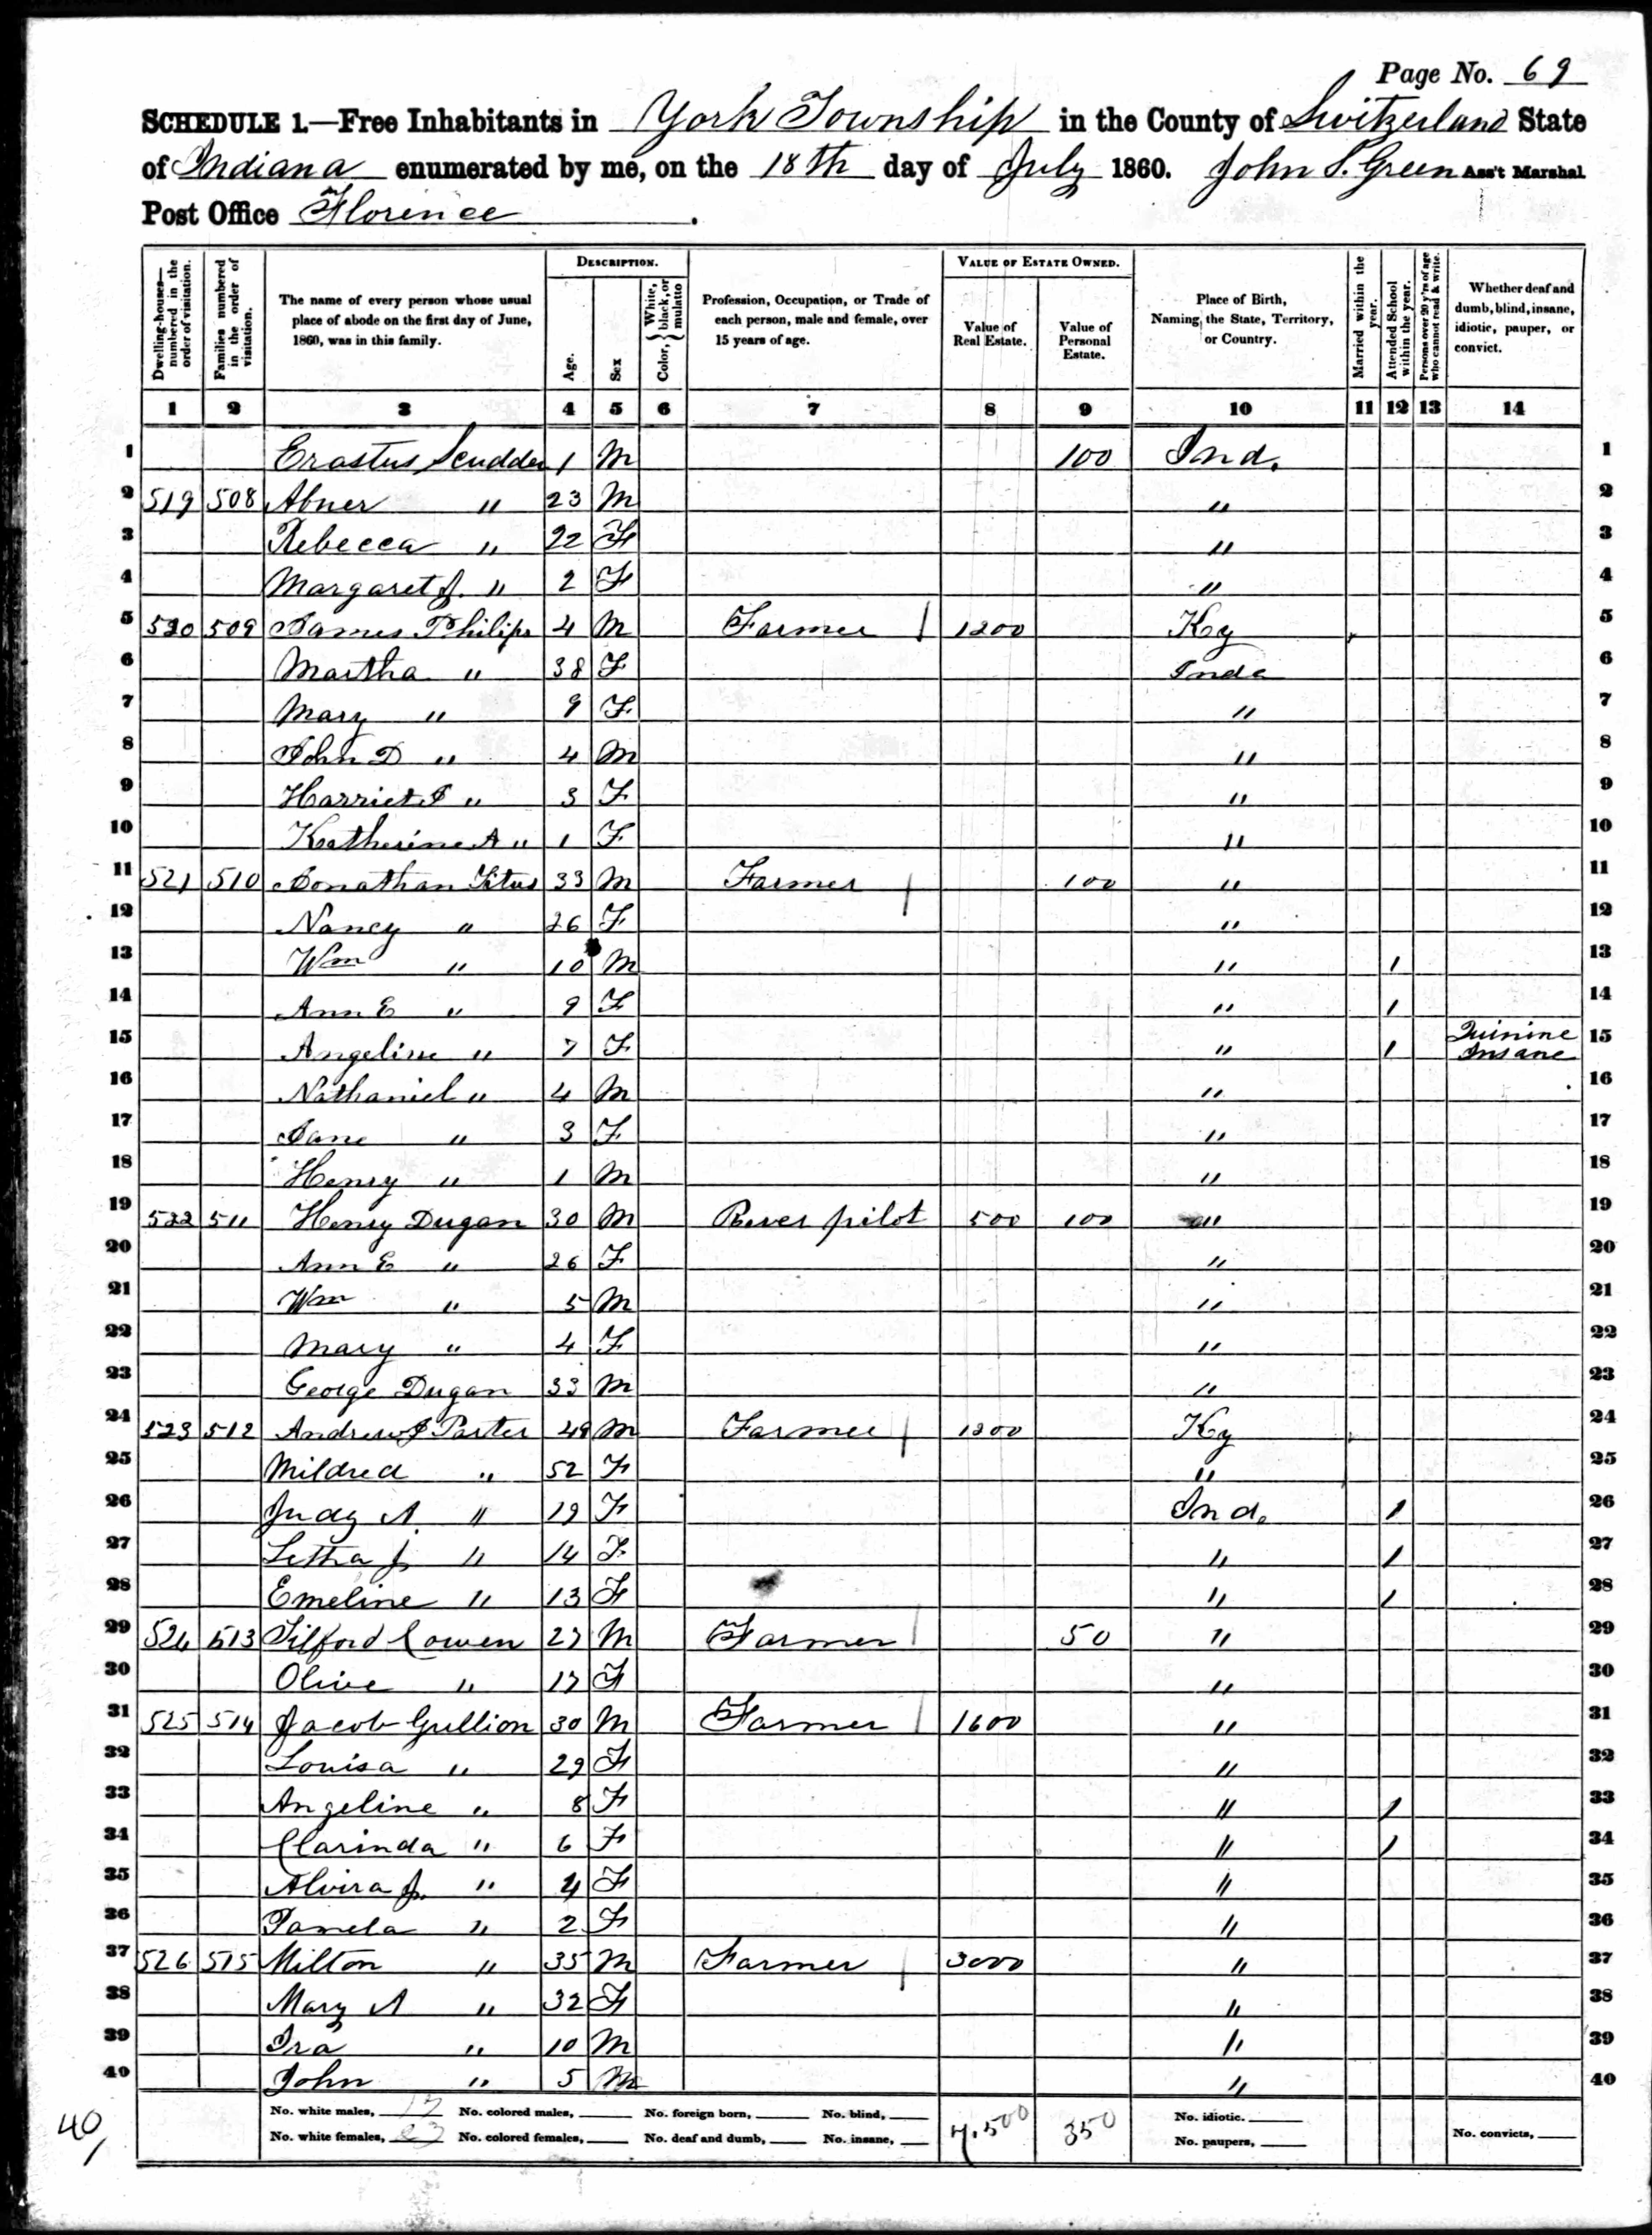 Page No. 69
SCHEDULE 1.—Free Inhabitants in York Township in the County of Switzerland State
of Indiana enumerated by me, on the 18th day of July 1860. John S. Green Ass't Marshal
Post Office Florence.
Dwelling-houses—numbered in the order of visitation. Families numbered in the order of visitation. The name of every person whose usual place of abode on the first day of June, 1860, was in this family. DESCRIPTION. Age. Sex Color, { White, black, or mulatto Profession, Occupation, or Trade of each person, male and female, over 15 years of age. VALUE OF ESTATE OWNED. Value of Real Estate. Value of Personal Estate. Place of Birth, Naming the State, Territory, or Country. Married within the year. Attended School within the year. Persons over 20 y'rs of age who cannot read & write. Whether deaf and dumb, blind, insane, idiotic, pauper, or convict.
1 2 3 4 5 6 7 8 9 10 11 12 13 14
1 Erastus Scudder 1 M 100 Ind. 1
2 519 508 Abner " 23 M " 2
3 Rebecca " 22 F " 3
4 Margaret J. " 2 F " 4
5 520 509 James Philips 4 M Farmer 1200 Ky 5
6 Martha " 38 F Inda 6
7 Mary " 9 F " 7
8 John D " 4 M " 8
9 Harriet J " 3 F " 9
10 Katherine A " 1 F " 10
11 521 510 Jonathan Titus 33 M Farmer 100 " 11
12 Nancy " 26 F " 12
13 Wm " 10 M " 1 13
14 Ann E " 9 F " 1 14
15 Angeline " 7 F " 1 Quinine Insane 15
16 Nathaniel " 4 M " 16
17 Jane " 3 F " 17
18 Henry " 1 M " 18
19 522 511 Henry Dugan 30 M River pilot 500 100 " 19
20 Ann E " 26 F " 20
21 Wm " 5 M " 21
22 Mary " 4 F " 22
23 George Dugan 33 M " 23
24 523 512 Andrew J Porter 49 M Farmer 1200 Ky 24
25 Mildred " 52 F " 25
26 Judy A. " 19 F Ind. 1 26
27 Letha J. " 14 F " 1 27
28 Emeline " 13 F " 1 28
29 524 513 Tilford Cowen 27 M Farmer 50 " 29
30 Olive " 17 F " 30
31 525 514 Jacob Gullion 30 M Farmer 1600 " 31
32 Louisa " 29 F " 32
33 Angeline " 8 F " 1 33
34 Clarinda " 6 F " 1 34
35 Alvira J. " 4 F " 35
36 Pamela " 2 F " 36
37 526 515 Milton " 35 M Farmer 3000 " 37
38 Mary A " 32 F " 38
39 Ira " 10 M " 39
40 John " 5 M " 40
No. white males, 17 No. colored males, No. foreign born, No. blind, 7,500 350 No. idiotic.
40 No. white females, 23 No. colored females, No. deaf and dumb, No. insane, No. paupers, No. convicts,